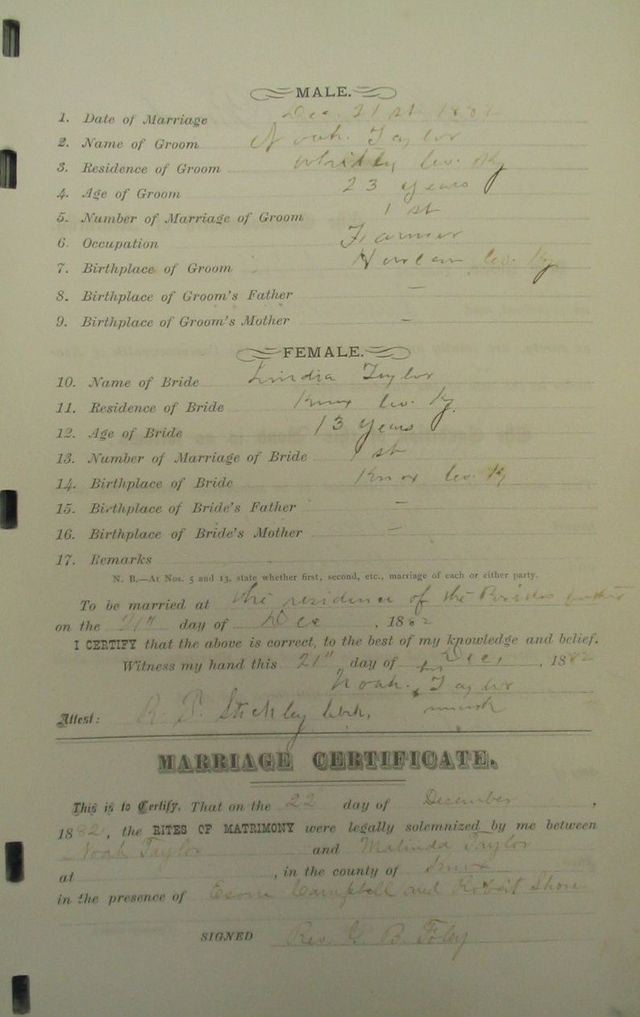 MALE.
1. Date of Marriage Dec. 21st 1882
2. Name of Groom Noah Taylor
3. Residence of Groom Whitley Co. Ky
4. Age of Groom 23 years
5. Number of Marriage of Groom 1st
6. Occupation Farmer
7. Birthplace of Groom Co. Ky
8. Birthplace of Groom's Father –
9. Birthplace of Groom's Mother –
FEMALE.
10. Name of Bride Taylor
11. Residence of Bride Knox Co. Ky.
12. Age of Bride 13 years
13. Number of Marriage of Bride 1st
14. Birthplace of Bride Knox Co. Ky
15. Birthplace of Bride's Father –
16. Birthplace of Bride's Mother –
17. Remarks
N. B.—At Nos. 5 and 13, state whether first, second, etc., marriage of each or either party.
To be married at the residence of the Brides father
on the 21" day of Dec 1882
I CERTIFY that the above is correct, to the best of my knowledge and belief.
Witness my hand this 21" day of Dec, , 1882
his
Noah. Taylor
mark
Attest: R. P. Stickley Clerk,
MARRIAGE CERTIFICATE.
This is to Certify, That on the 22 day of December ,
1882, the RITES OF MATRIMONY were legally solemnized by me between
Noah Taylor and Malinda Taylor
at , in the county of Knox
in the presence of Campbell and Robert
SIGNED Rev. G. B. Foley